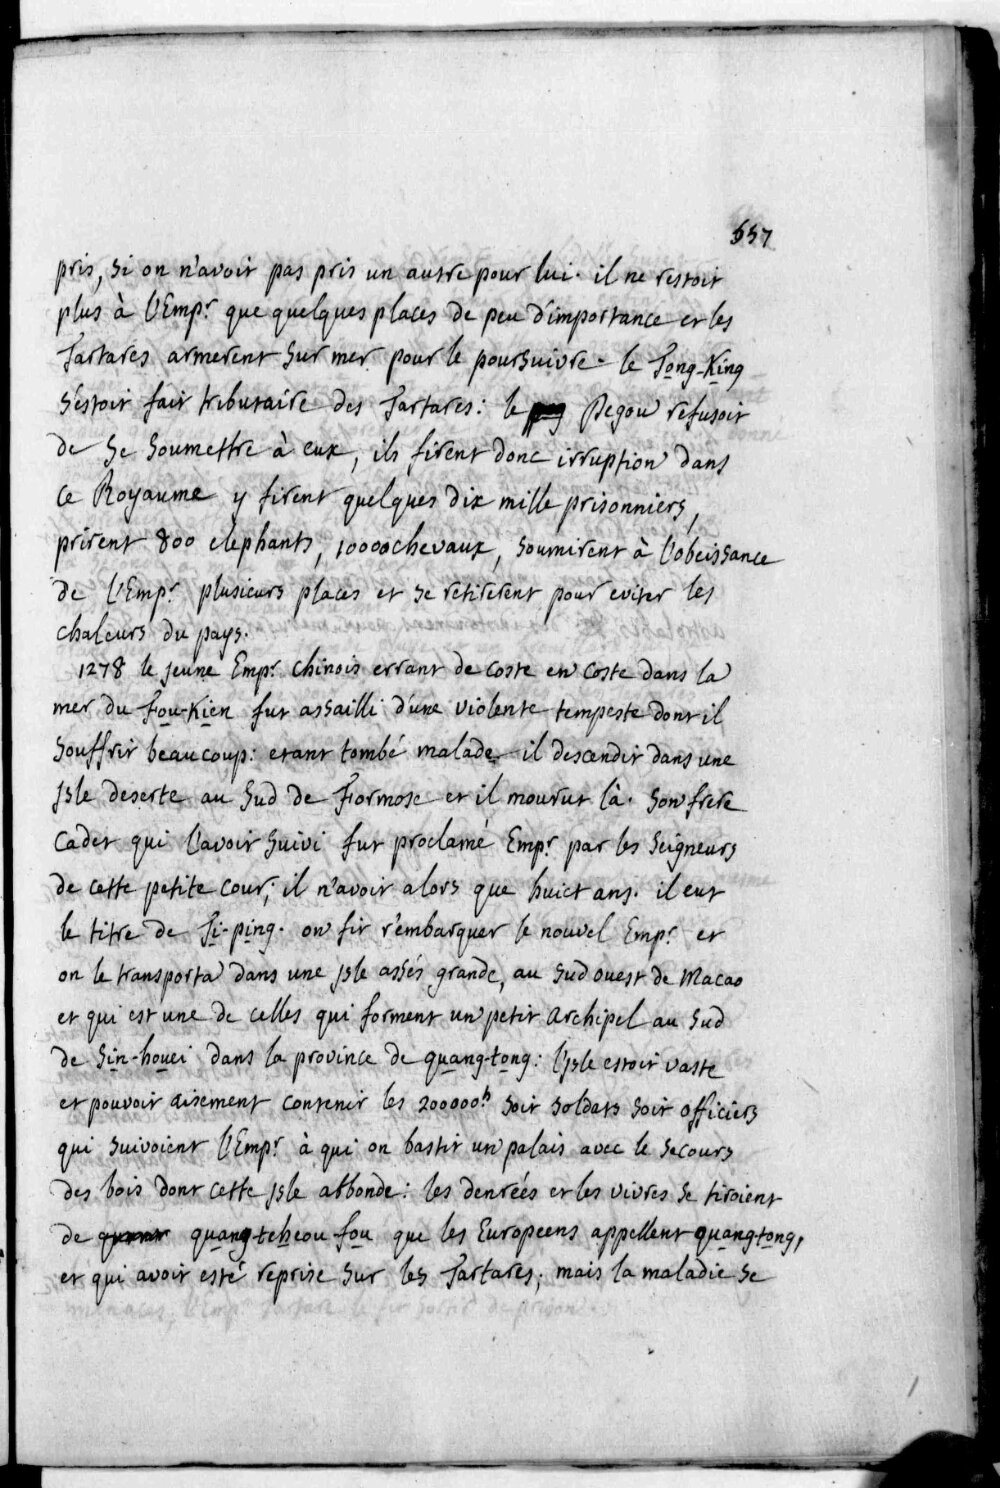 557
pris, si on n'avoit pas pris un autre pour lui. il ne restoit
plus à l'Emp.r que quelques places de peu d'importance et les
Tartares armerent sur mer pour le poursuivre. le Tong-King
s'estoit fait tributaire des Tartares: le Pegou refusoit
de se soumettre à eux, ils firent donc irruption dans
ce Royaume y firent quelques dix mille prisonniers,
prirent 800 elephants, 10000 chevaux, soumirent à l'obeissance
de l'Emp.r plusieurs places et se retirerent pour eviter les
chaleurs du pays.
1278 le jeune Emp.r chinois errant de coste en coste dans la
mer du Fou-Kien fut assailli d'une violente tempeste dont il
souffrit beaucoup: etant tombé malade il descendit dans une
Isle deserte au Sud de Formose et il mourut là. son frere
cadet qui l'avoit suivi fut proclamé Emp.r par les seigneurs
de cette petite cour; il n'avoit alors que huict ans. il eut
le titre de Ti-ping. on fit r'embarquer le nouvel Emp.r et
on le transporta dans une Isle assés grande, au sud ouest de Macao
et qui est une de celles qui forment un petit archipel au Sud
de Sin-houei dans la province de quang-tong: l'Isle estoit vaste
et pouvoit aisement contenir les 200000h soit soldats soit officiers
qui suivoient l'Emp.r à qui on bastit un palais avec le secours
des bois dont cette Isle abbonde: les denrées et les vivres se tiroient
de quang-tcheou fou que les Europeens appellent quang-tong,
et qui avoit esté reprise sur les Tartares; mais la maladie se